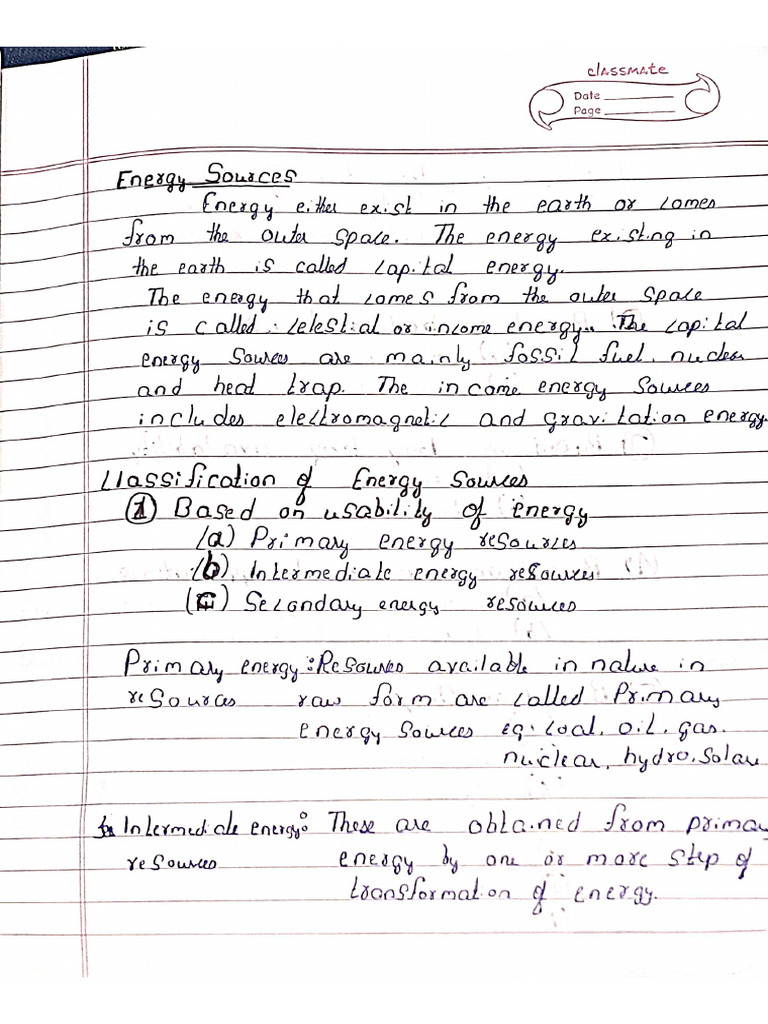 classmate
Date
Page
Energy Sources
Energy either exist in the earth or comes
from the outer space. The energy existing in
the earth is called capital energy.
The energy that comes from the outer space
is called celestial or income energy. The capital
energy sources are mainly fossil fuel, nuclear
and heat trap. The income energy sources
includes electromagnetic and gravitation energy.
Classification of Energy Sources
(1) Based on usability of energy
(a) Primary energy resources
(b) Intermediate energy resources
(c) Secondary energy resources
Primary energy: Resources available in nature in
resources raw form are called Primary
energy sources eg: coal, oil, gas.
nuclear, hydro, solar
Intermediate energy: These are obtained from primary
resources energy by one or more step of
transformation of energy.